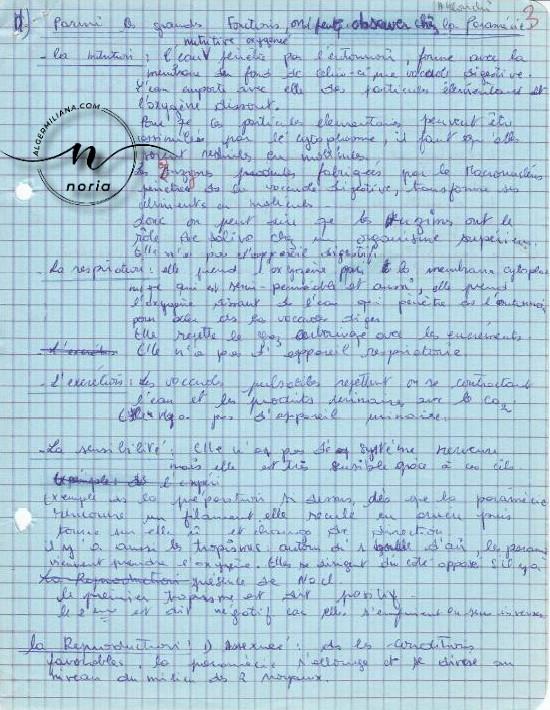 Parmi les grands fonctions, on peut observer chez la Paramécie
3
nutritive oxygénée
- La nutrition : l'eau pénètre par l'entonnoir, forme avec la
membrane du fond de celui-ci une vacuole digestive.
L'eau apporte avec elle des particules élémentaires et
l'oxygène dissout.
Pour que ces particules élémentaires peuvent être
assimilées par le cytoplasme il faut qu'elles
soient réduites en molécules.
ALGERMILIANA.COM
n
noria
Les enzymes produites fabriquées par le Macronucleus
pénètre ds la vacuole digestive, transforme ses
éléments en molécules.
donc on peut dire que les enzymes ont le
rôle de salive chez un organisme supérieur.
Elle n'a pas d'appareil digestif.
- La respiration : elle prend l'oxygène par la membrane cytoplas-
mique qui est semi-perméable et aussi, elle prend
l'oxygène dissout de l'eau qui pénètre ds l'entonnoir
pour aller ds la vacuole diges
Elle rejette le gaz carbonique avec les excréments.
Elle n'a pas d'appareil respiratoire.
- L'excrétion : Les vacuoles pulsatiles rejettent en se contractant
l'eau et les produits urinaires avec le CO2
Elle n'a pas d'appareil urinaire.
- La sensibilité : Elle n'a pas de système nerveux
mais elle est très sensible grâce à ces cils.
Exemple ds la préparation ci dessus, dès que la paramécie
rencontre un filament elle recule en arrière puis
tourne sur elle et change de direction
il y a aussi les tropismes autour d'1 bulle d'air, les param
viennent prendre l'oxygène. Elles se dirigent du côté opposé s'il y a
présence de NaCl
le premier tropisme est dit positif
le 2ème est dit négatif car elles s'enfuient en sens inverse
La Reproduction : 1) Asexuée : ds les conditions
favorables, la paramécie s'allonge et se divise au
niveau du milieu des 2 noyaux.